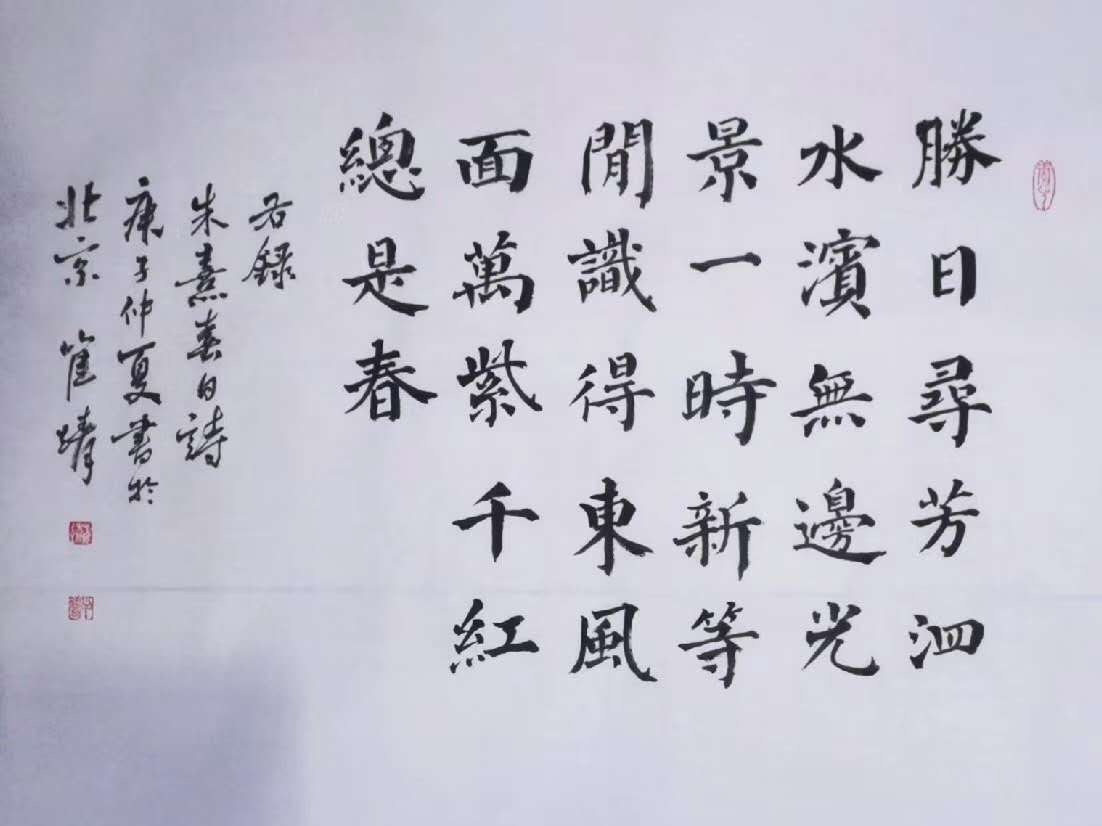 勝日尋芳泗
水濱無邊光
景一時新等
閒識得東風
面萬紫千紅
總是春
右録
朱熹春日詩
庚子仲夏書於
北京 崔靖